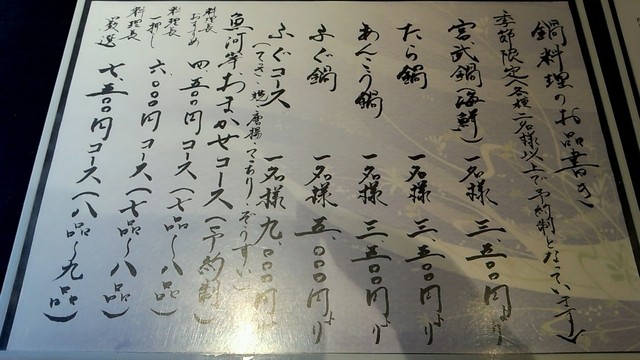 鍋料理のお品書き
季節限定(各種二名様以上で予約制となっています)
宮武鍋(海鮮) 一名様 三、五〇〇円より
たら鍋 一名様 三、五〇〇円より
あんこう鍋 一名様 三、五〇〇円より
ふぐ鍋 一名様 五、〇〇〇円より
ふぐコース 一名様 九、〇〇〇円より
(てっさ・焼・唐揚・てっちり・ぞうすい)
魚河岸おまかせコース(予約制)
料理長おすすめ 四、五〇〇円コース(七品〜八品)
料理長一押し 六、〇〇〇円コース(七品〜八品)
料理長厳選 七、五〇〇円コース(八品〜九品)